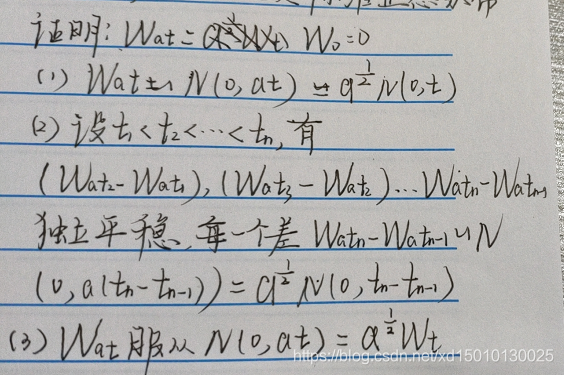 证明: Wat = a^{1/2}Wt, W₀=0
(1) Wat ~ N(0, at) = a^{1/2} N(0,t)
(2) 设 t₁<t₂<…<tn, 有
(Wat₂-Wat₁), (Wat₃-Wat₂)…Watn-Watn-1
独立平稳, 每一个差 Watn-Watn-1 ~ N
(0, a(tn-tn-1)) = a^{1/2} N(0, tn-tn-1)
(3) Wat 服从 N(0, at) = a^{1/2} Wt
https://blog.csdn.net/xd15010130025